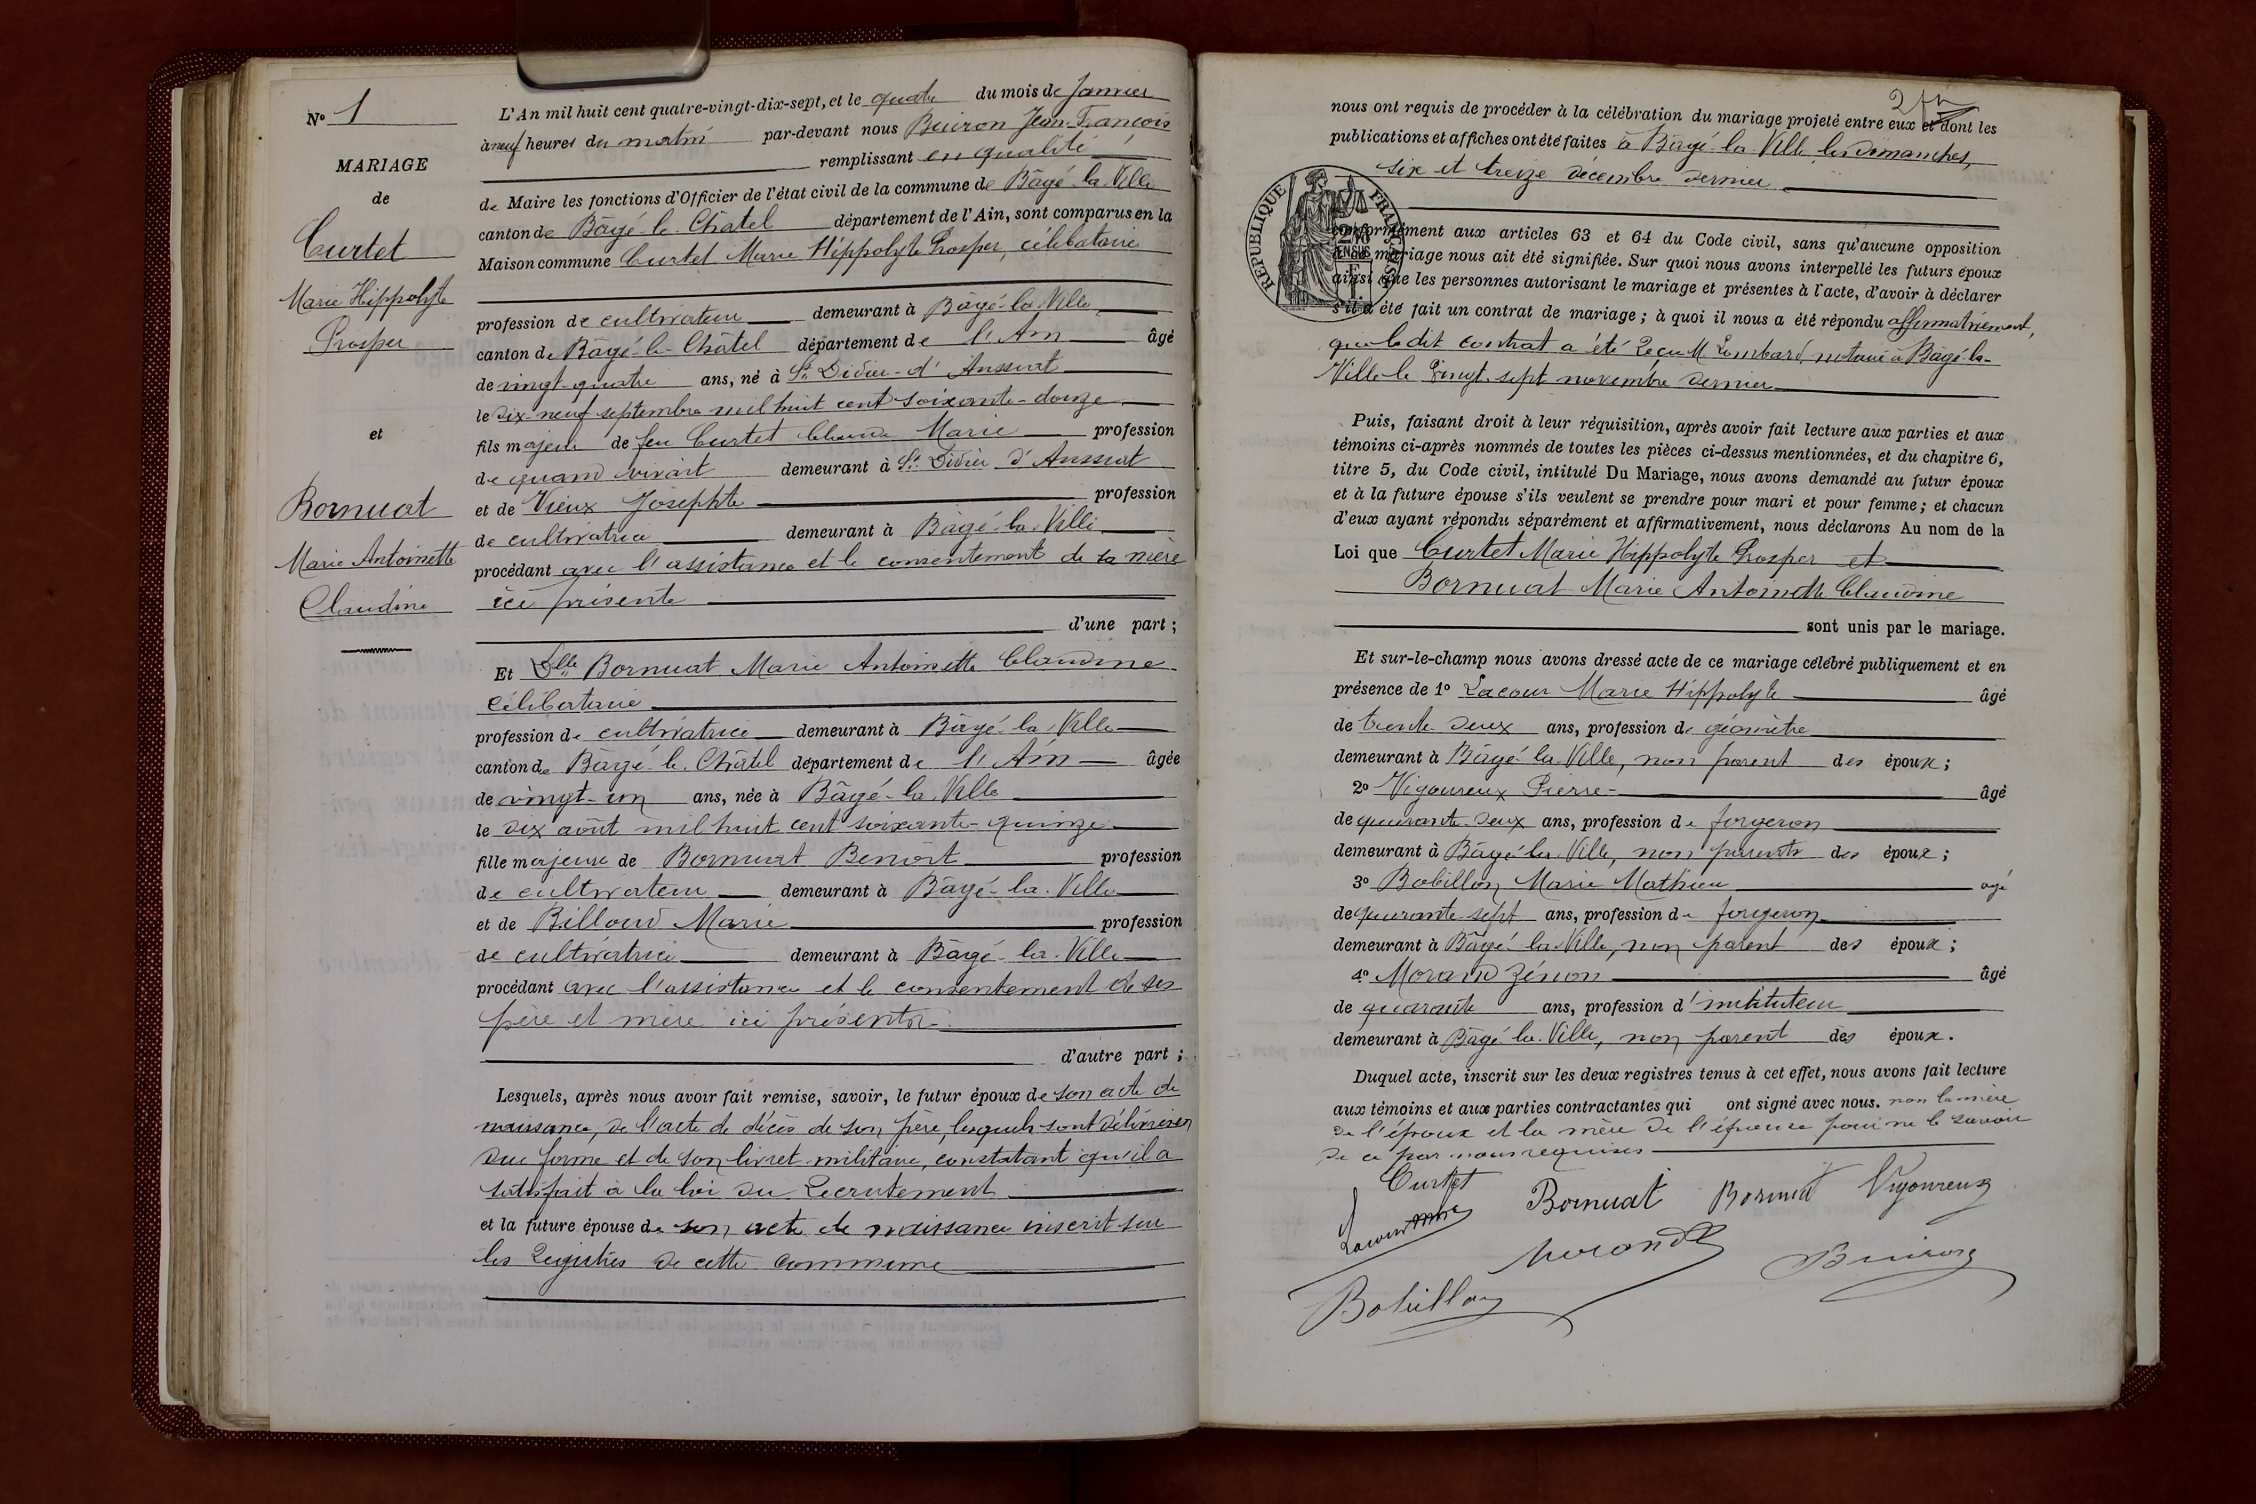 Nº 1
MARIAGE
de
Curtet
Marie Hippolyte
Prosper
et
Bornuat
Marie Antoinette
Claudine
L'An mil huit cent quatre-vingt-dix-sept, et le quatre du mois de Janvier
à neuf heures du matin par-devant nous Buiron Jean-François
remplissant en qualité
de Maire les fonctions d'Officier de l'état civil de la commune de Bâgé-la-Ville
canton de Bâgé-le-Châtel département de l'Ain, sont comparus en la
Maison commune Curtet Marie Hippolyte Prosper, célibataire
profession de cultivateur demeurant à Bâgé-la-Ville,
canton de Bâgé-le-Châtel département de l'Ain âgé
de vingt-quatre ans, né à St Didier-d'Aussiat
le dix-neuf septembre mil huit cent soixante-douze
fils majeur de feu Curtet Claude Marie profession
de quand vivait demeurant à St Didier d'Aussiat
et de Vieux Josephte profession
de cultivatrice demeurant à Bâgé-la-Ville,
procédant avec l'assistance et le consentement de sa mère
ici présente
d'une part ;
Et Delle Bornuat Marie Antoinette Claudine
célibataire
profession de cultivatrice demeurant à Bâgé-la-Ville
canton de Bâgé-le-Châtel département de l'Ain âgée
de vingt-un ans, née à Bâgé-la-Ville
le dix août mil huit cent soixante-quinze
fille majeure de Bornuat Benoît profession
de cultivateur demeurant à Bâgé-la-Ville
et de Billoud Marie profession
de cultivatrice demeurant à Bâgé-la-Ville
procédant avec l'assistance et le consentement de ses
père et mère ici présents
d'autre part ;
Lesquels, après nous avoir fait remise, savoir, le futur époux de son acte de
naissance, de l'acte de décès de son père, lesquels sont délivrés en
due forme et de son livret militaire, constatant qu'il a
satisfait à la loi du Recrutement
et la future épouse de son acte de naissance inscrit sur
les Registres de cette commune
2
nous ont requis de procéder à la célébration du mariage projeté entre eux et dont les
publications et affiches ont été faites à Bâgé-la-Ville les dimanches,
six et treize décembre dernier
RÉPUBLIQUE FRANÇAISE
conformément aux articles 63 et 64 du Code civil, sans qu'aucune opposition
à ce mariage nous ait été signifiée. Sur quoi nous avons interpellé les futurs époux
ainsi que les personnes autorisant le mariage et présentes à l'acte, d'avoir à déclarer
s'il a été fait un contrat de mariage ; à quoi il nous a été répondu affirmativement,
que le dit contrat a été reçu M Lombard, notaire à Bâgé-la-
Ville le vingt-sept novembre dernier
Puis, faisant droit à leur réquisition, après avoir fait lecture aux parties et aux
témoins ci-après nommés de toutes les pièces ci-dessus mentionnées, et du chapitre 6,
titre 5, du Code civil, intitulé Du Mariage, nous avons demandé au futur époux
et à la future épouse s'ils veulent se prendre pour mari et pour femme ; et chacun
d'eux ayant répondu séparément et affirmativement, nous déclarons Au nom de la
Loi que Curtet Marie Hippolyte Prosper et
Bornuat Marie Antoinette Claudine
sont unis par le mariage.
Et sur-le-champ nous avons dressé acte de ce mariage célébré publiquement et en
présence de 1º Lacour Marie Hippolyte âgé
de trente-deux ans, profession de géomètre
demeurant à Bâgé-la-Ville, non parent des époux ;
2º Vigoureux Pierre âgé
de quarante-deux ans, profession de forgeron
demeurant à Bâgé-la-Ville, non parents des époux ;
3º Bobillon Marie Mathieu âgé
de quarante-sept ans, profession de forgeron
demeurant à Bâgé-la-Ville, non parent des époux ;
4º Morand Zénon âgé
de quarante ans, profession d'instituteur
demeurant à Bâgé-la-Ville, non parent des époux.
Duquel acte, inscrit sur les deux registres tenus à cet effet, nous avons fait lecture
aux témoins et aux parties contractantes qui ont signé avec nous. non la mère
de l'époux et la mère de l'épouse pour ne le savoir
de ce par nous requises
Curtet
Bornuat Bornuat Vigoureux
Lacour
Morand Buiron
Bobillon